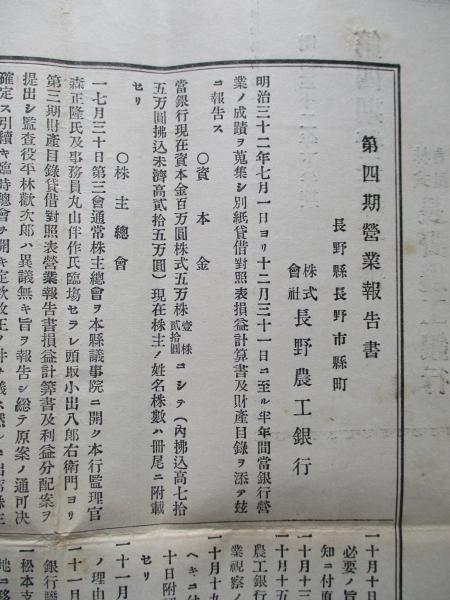 第四期營業報告書
長野縣長野市縣町
株式會社 長野農工銀行
明治三十二年七月一日ヨリ十二月三十一日ニ至ル半年間當銀行營
業ノ成蹟ヲ蒐集シ別紙貸借對照表損益計算書及財產目錄ヲ添テ玆
ニ報告ス
〇資本金
當銀行現在資本金百万圓株式五万株壹株貳拾圓ニシテ(內拂込高七拾
五万圓拂込未濟高貳拾五万圓)現在株主ノ姓名株數ハ冊尾ニ附載
セリ
〇株主總會
一七月三十日第三會通常株主總會ヲ本縣議事院ニ開ク本行監理官
森正隆氏及事務員丸山伴作氏臨塲セラレ頭取小出八郎右衛門ヨリ
第三期財產目錄貸借對照表營業報告書損益計筭書及利益分配案ヲ
提出シ監査役平林歡次郎ハ異議無キ旨ヲ報告シ總テ原案ノ通可決
確定ス引續キ臨時總會ヲ開キ定欵改正ノ件
十月十日
必要ノ旨
知ニ付直
一十月十三
一十月十五
農工銀行
一十月十九
業視察ノ
十日附
セリ
一十一月
ノ理由
一十一月
銀行聯
一松本支